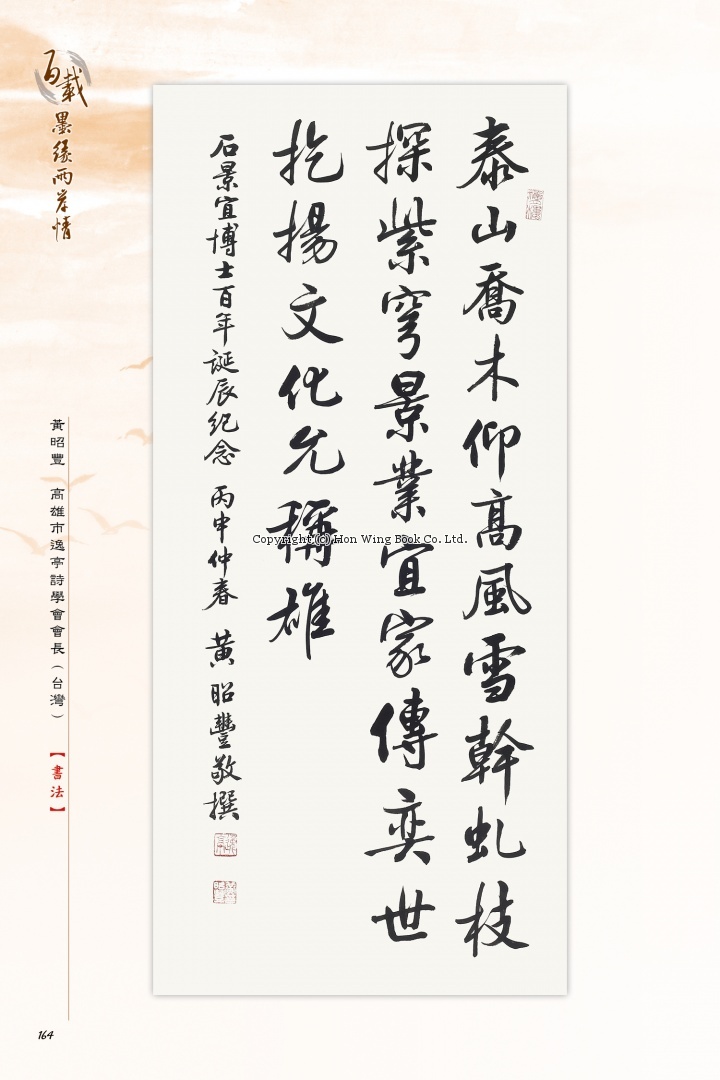 百載墨緣兩岸情
泰山喬木仰高風雪幹虬枝
探紫穹景業宜家傳奕世
扢揚文化允稱雄
石景宜博士百年誕辰紀念 丙申仲春 黃昭豐敬撰
黃昭豐 高雄市逸亭詩學會會長(台灣)
【書法】
Copyright (c) Hon Wing Book Co. Ltd.
164